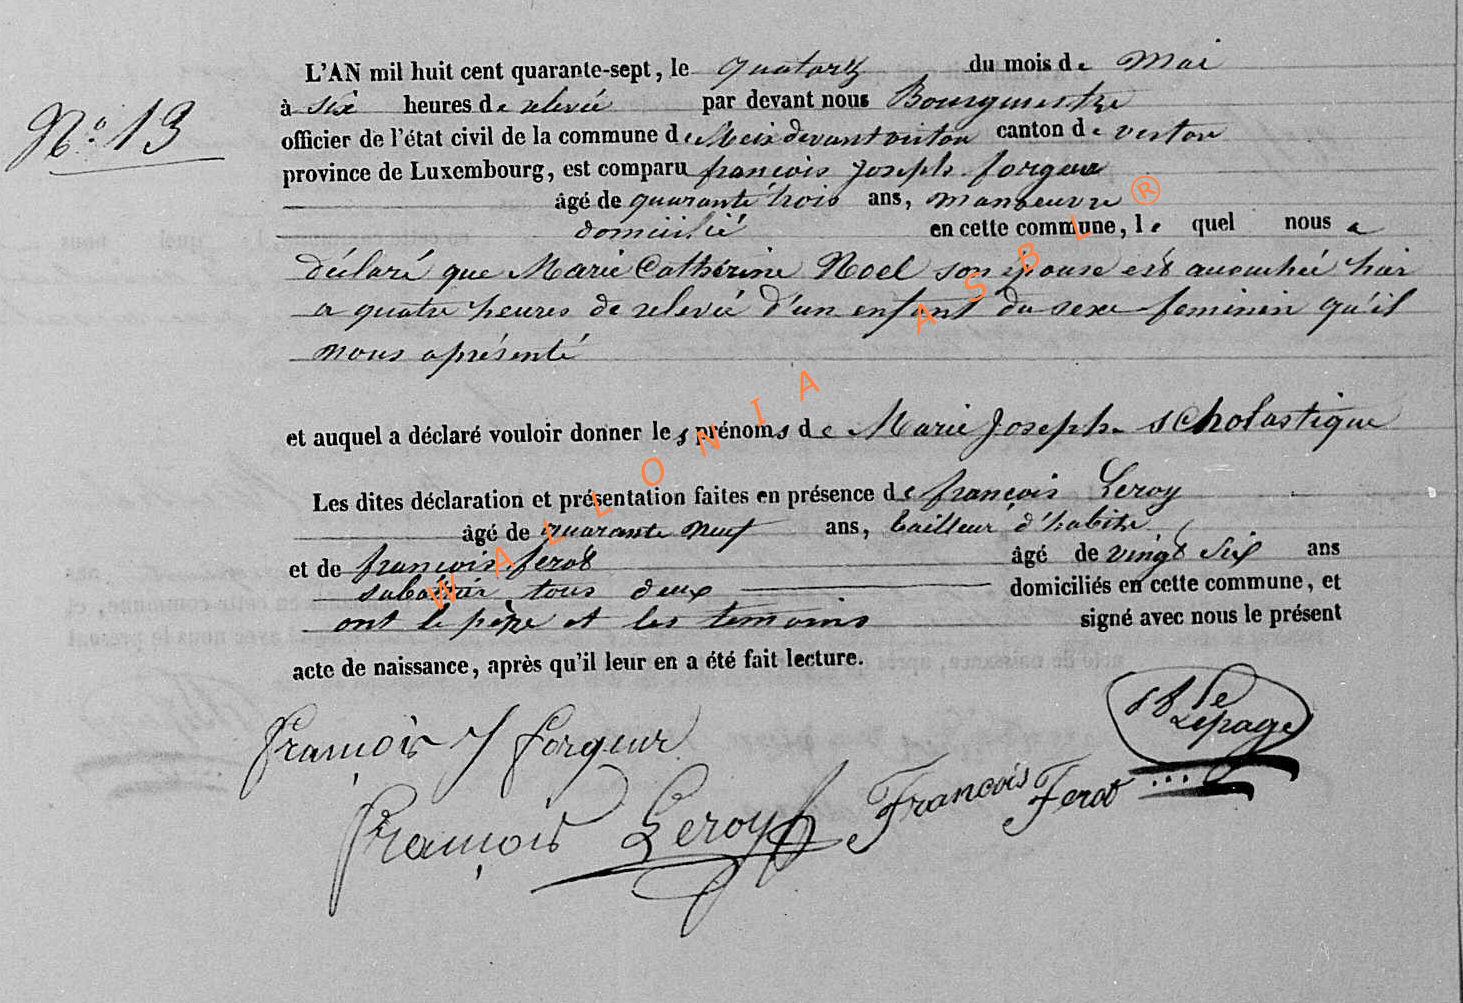 L'AN mil huit cent quarante-sept, le quatorz du mois de Mai
N° 13
à six heures de relevée par devant nous Bourgmestre
officier de l'état civil de la commune de Meix devant virton canton de virton
province de Luxembourg, est comparu françois Joseph forgeur
âgé de quarante trois ans, manoeuvre
domicilié en cette commune, le quel nous a
déclaré que Marie Cathérine Noel son épouse est accouchée hier
a quatre heures de relevée d'un enfant du sexe feminin qu'il
nous a présenté
et auquel a déclaré vouloir donner les prénoms de Marie Joseph scholastique
Les dites déclaration et présentation faites en présence de françois Leroy
âgé de quarante neuf ans, tailleur d'habits
et de françois ferot âgé de vingt six ans
tous deux domiciliés en cette commune, et
ont le père et les temoins signé avec nous le présent
acte de naissance, après qu'il leur en a été fait lecture.
françois J forgeur
Lepage
françois Leroy
François Ferot
WALLONIA ASBL ®